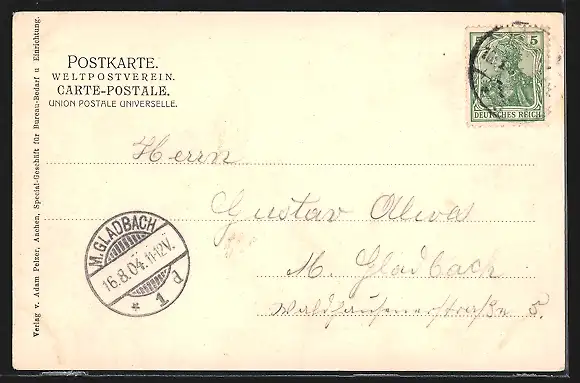 POSTKARTE.
WELTPOSTVEREIN.
CARTE-POSTALE.
UNION POSTALE UNIVERSELLE.
5
DEUTSCHES REICH
Herrn
Gustav
M. Gladbach
Waldhausenerstraße 5.
M. GLADBACH
16.8.04. 11-12V.
* 1 d
Verlag v. Adam Pelzer, Aachen, Special-Geschäft für Bureau-Bedarf u Einrichtung.